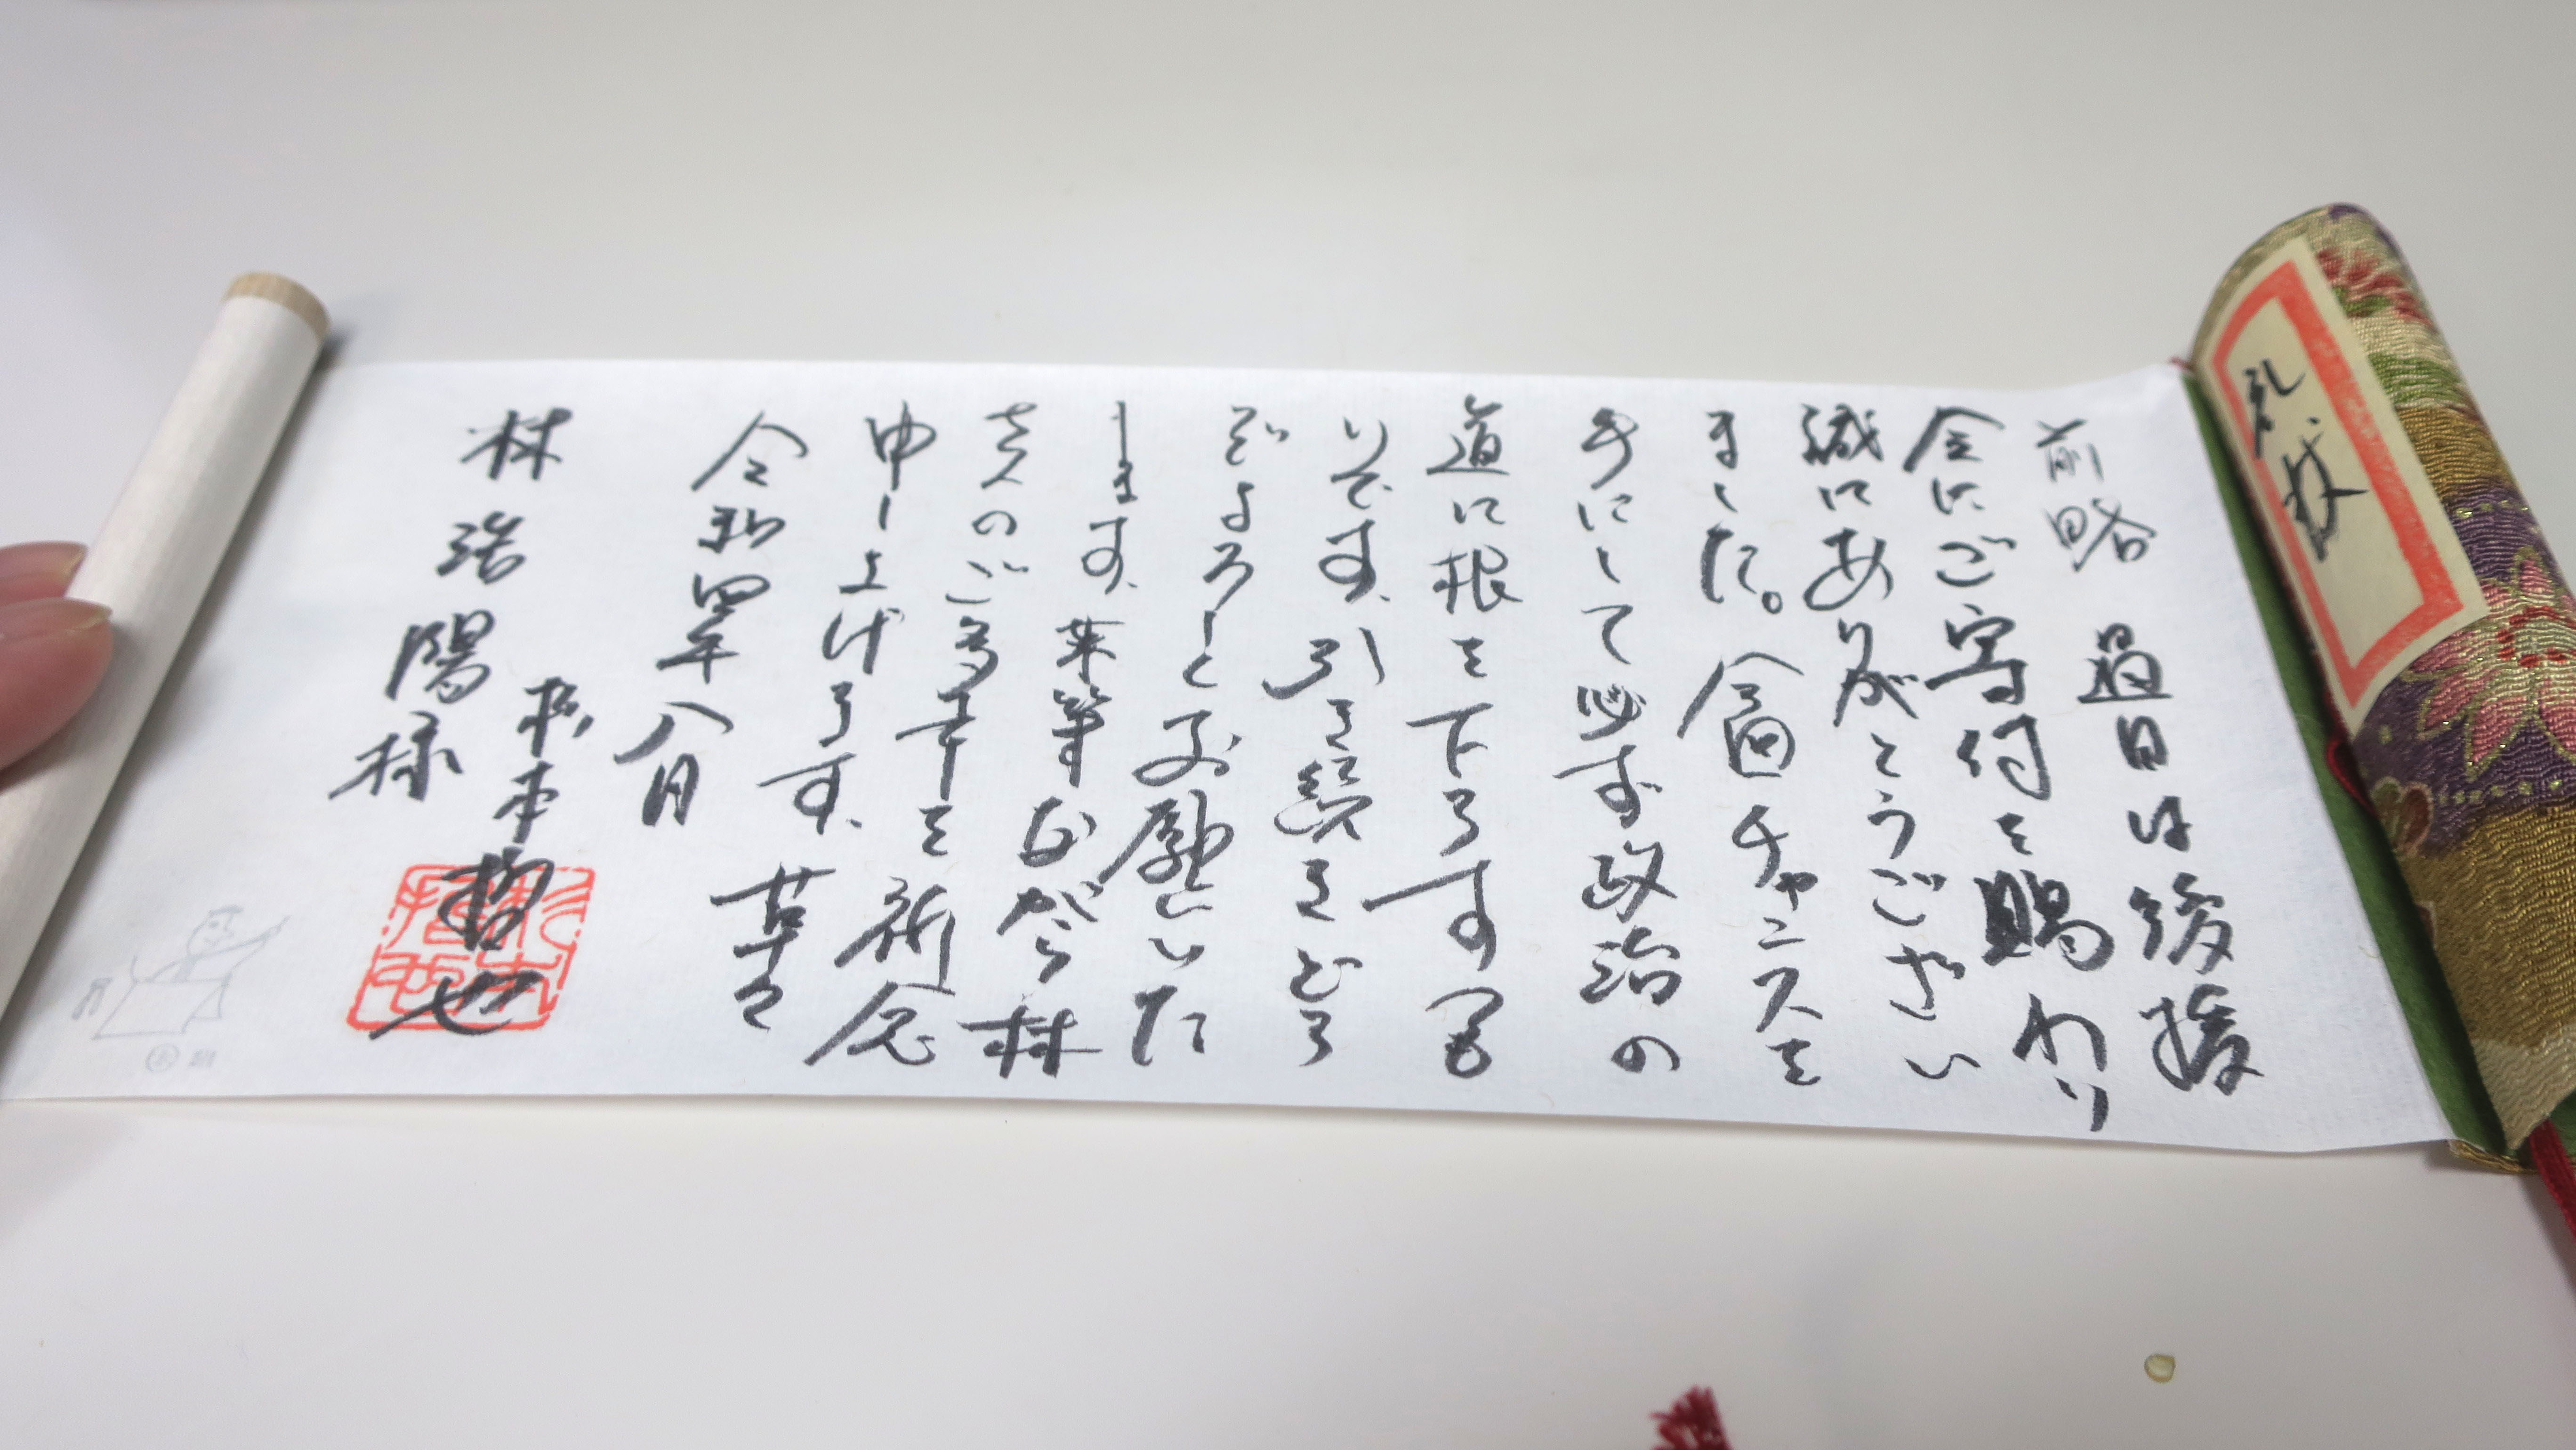 礼状
前略 過日は後援
会にご寄付を賜わり
誠にありがとうござい
ました。今回チャンスを
手にして必ず政治の
道に根を下ろすつも
りです。引き続きどう
ぞよろしくお願いいた
します。末筆ながら林
さんのご多幸を祈念
申し上げます。草々
令和四年八月
松本哲也
林浩陽様